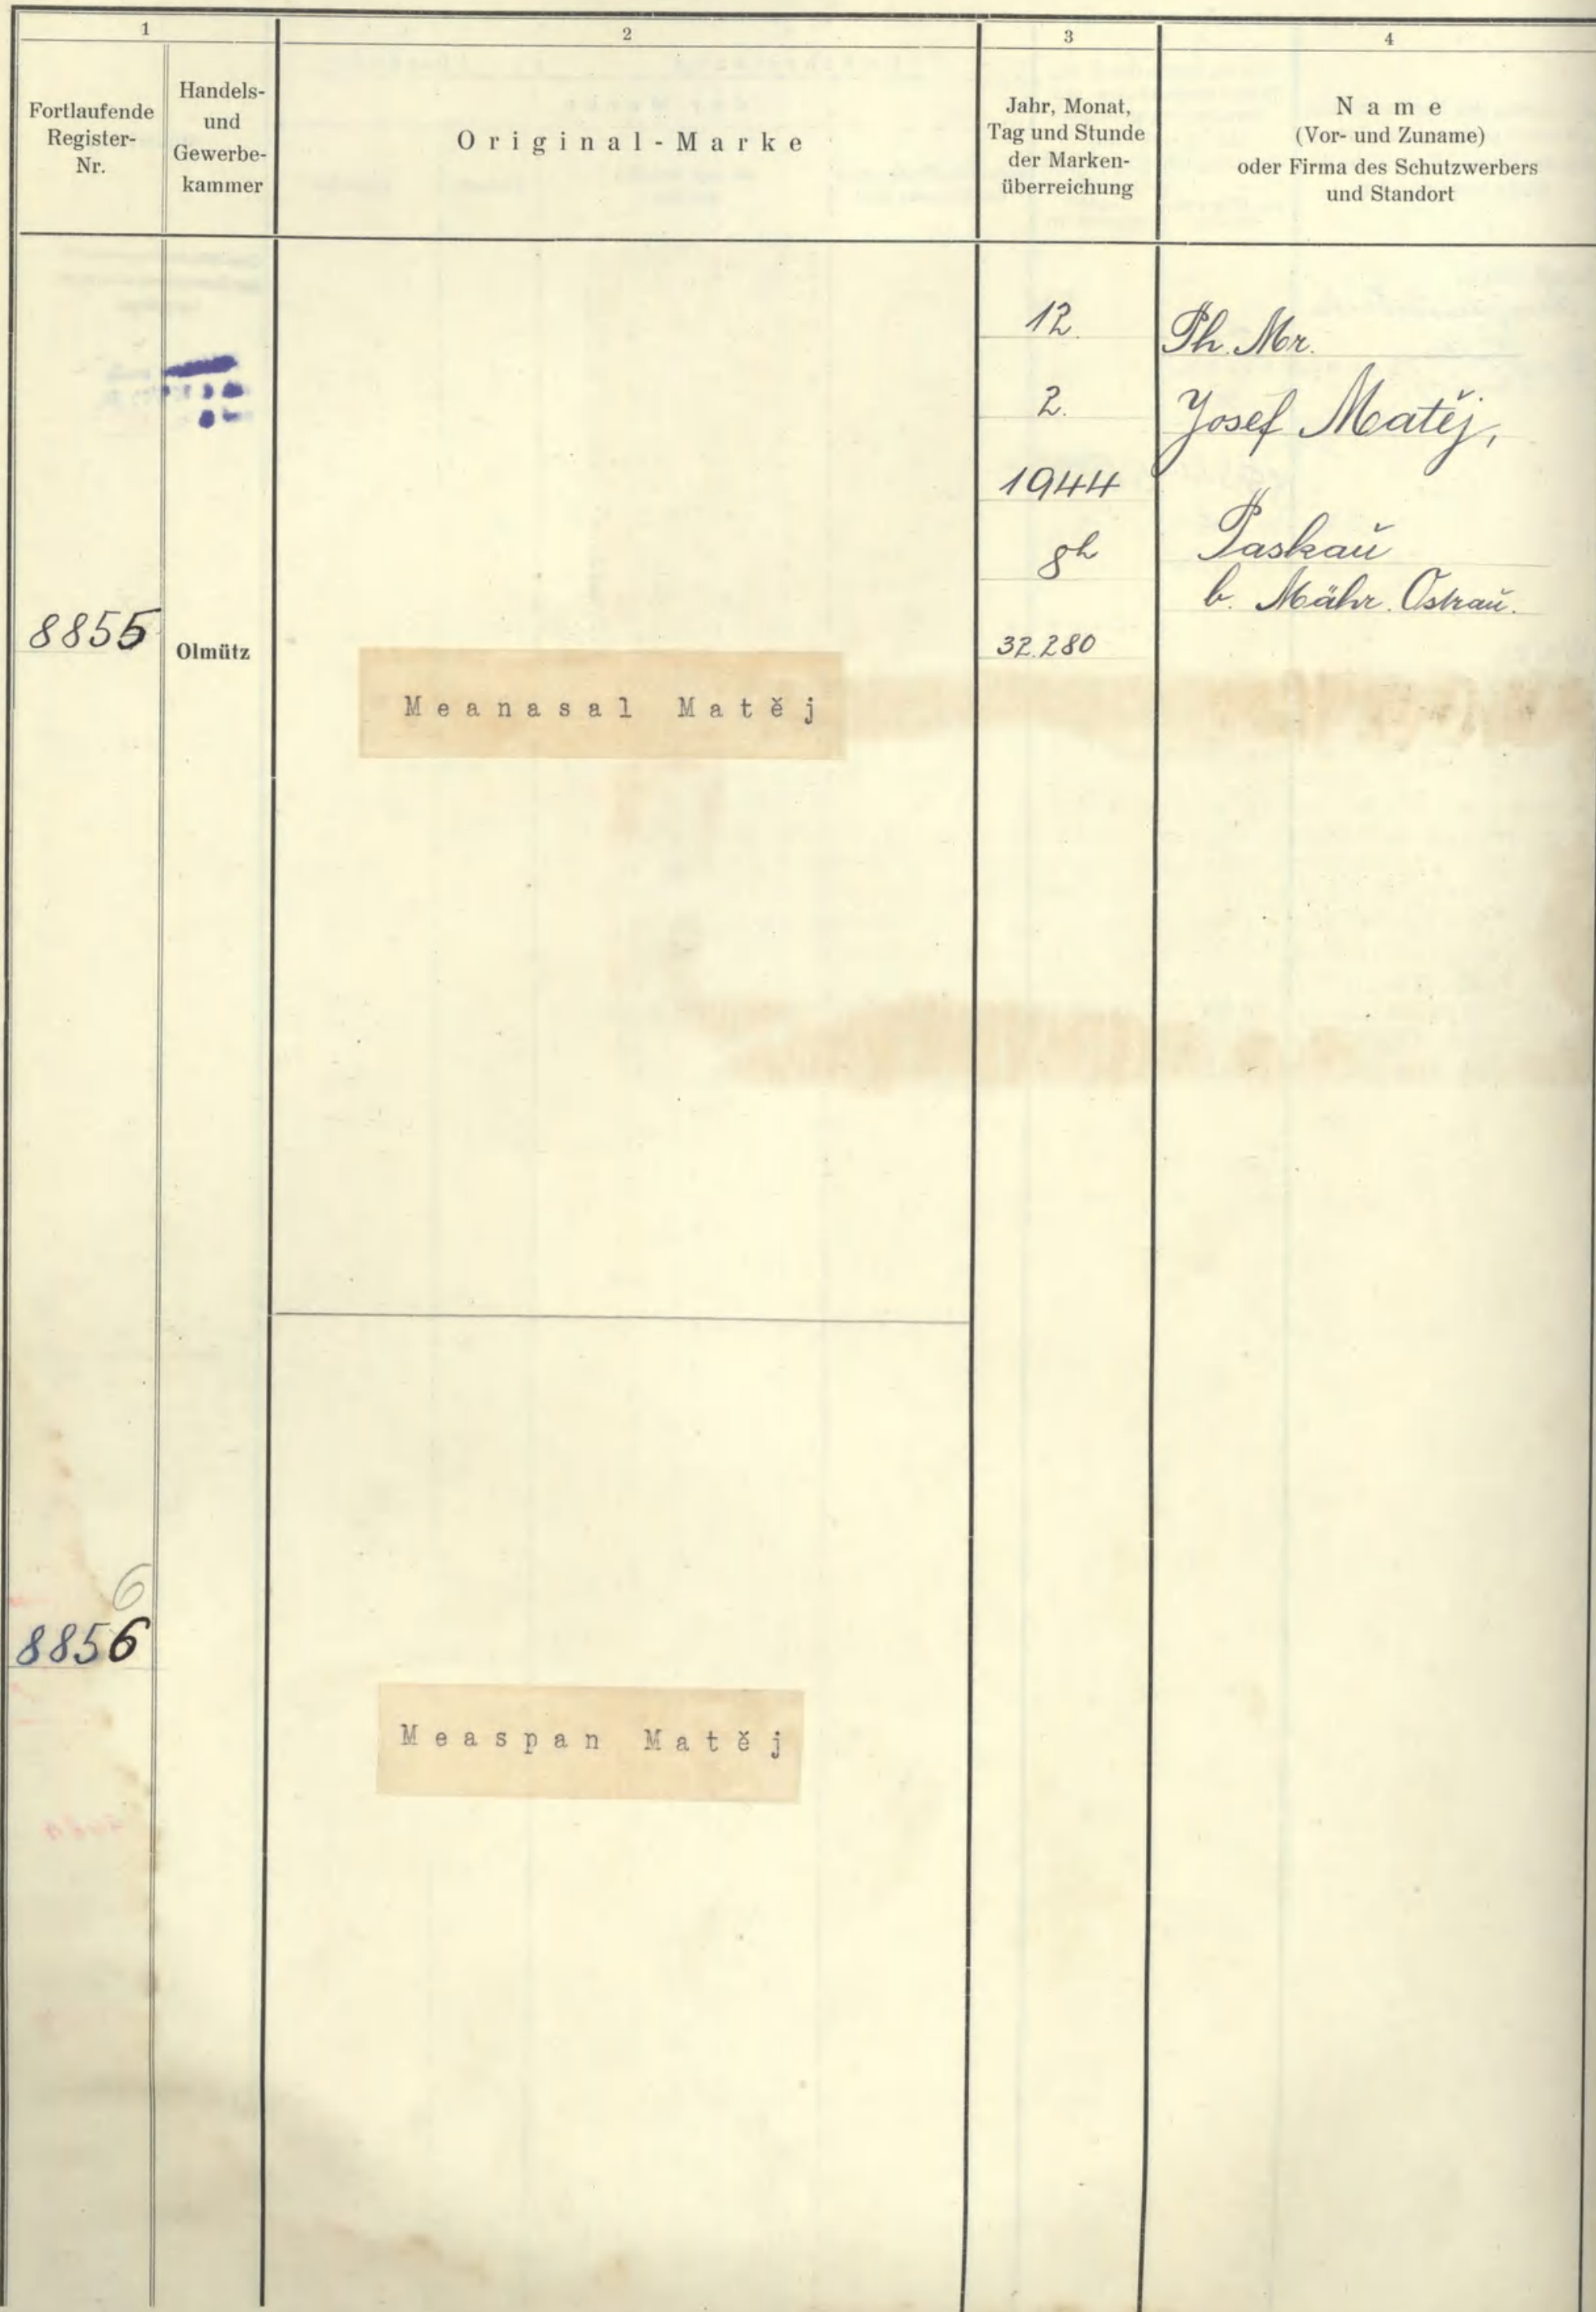 1
2
3
4
Fortlaufende
Register-
Nr.
Handels-
und
Gewerbe-
kammer
Original-Marke
Jahr, Monat,
Tag und Stunde
der Marken-
überreichung
Name
(Vor- und Zuname)
oder Firma des Schutzwerbers
und Standort
8855
Olmütz
Meanasal Matěj
12.
2.
1944
8h
32.280
Ph. Mr.
Josef Matěj,
Paskau
b. Mähr. Ostrau.
6
8856
Measpan Matěj